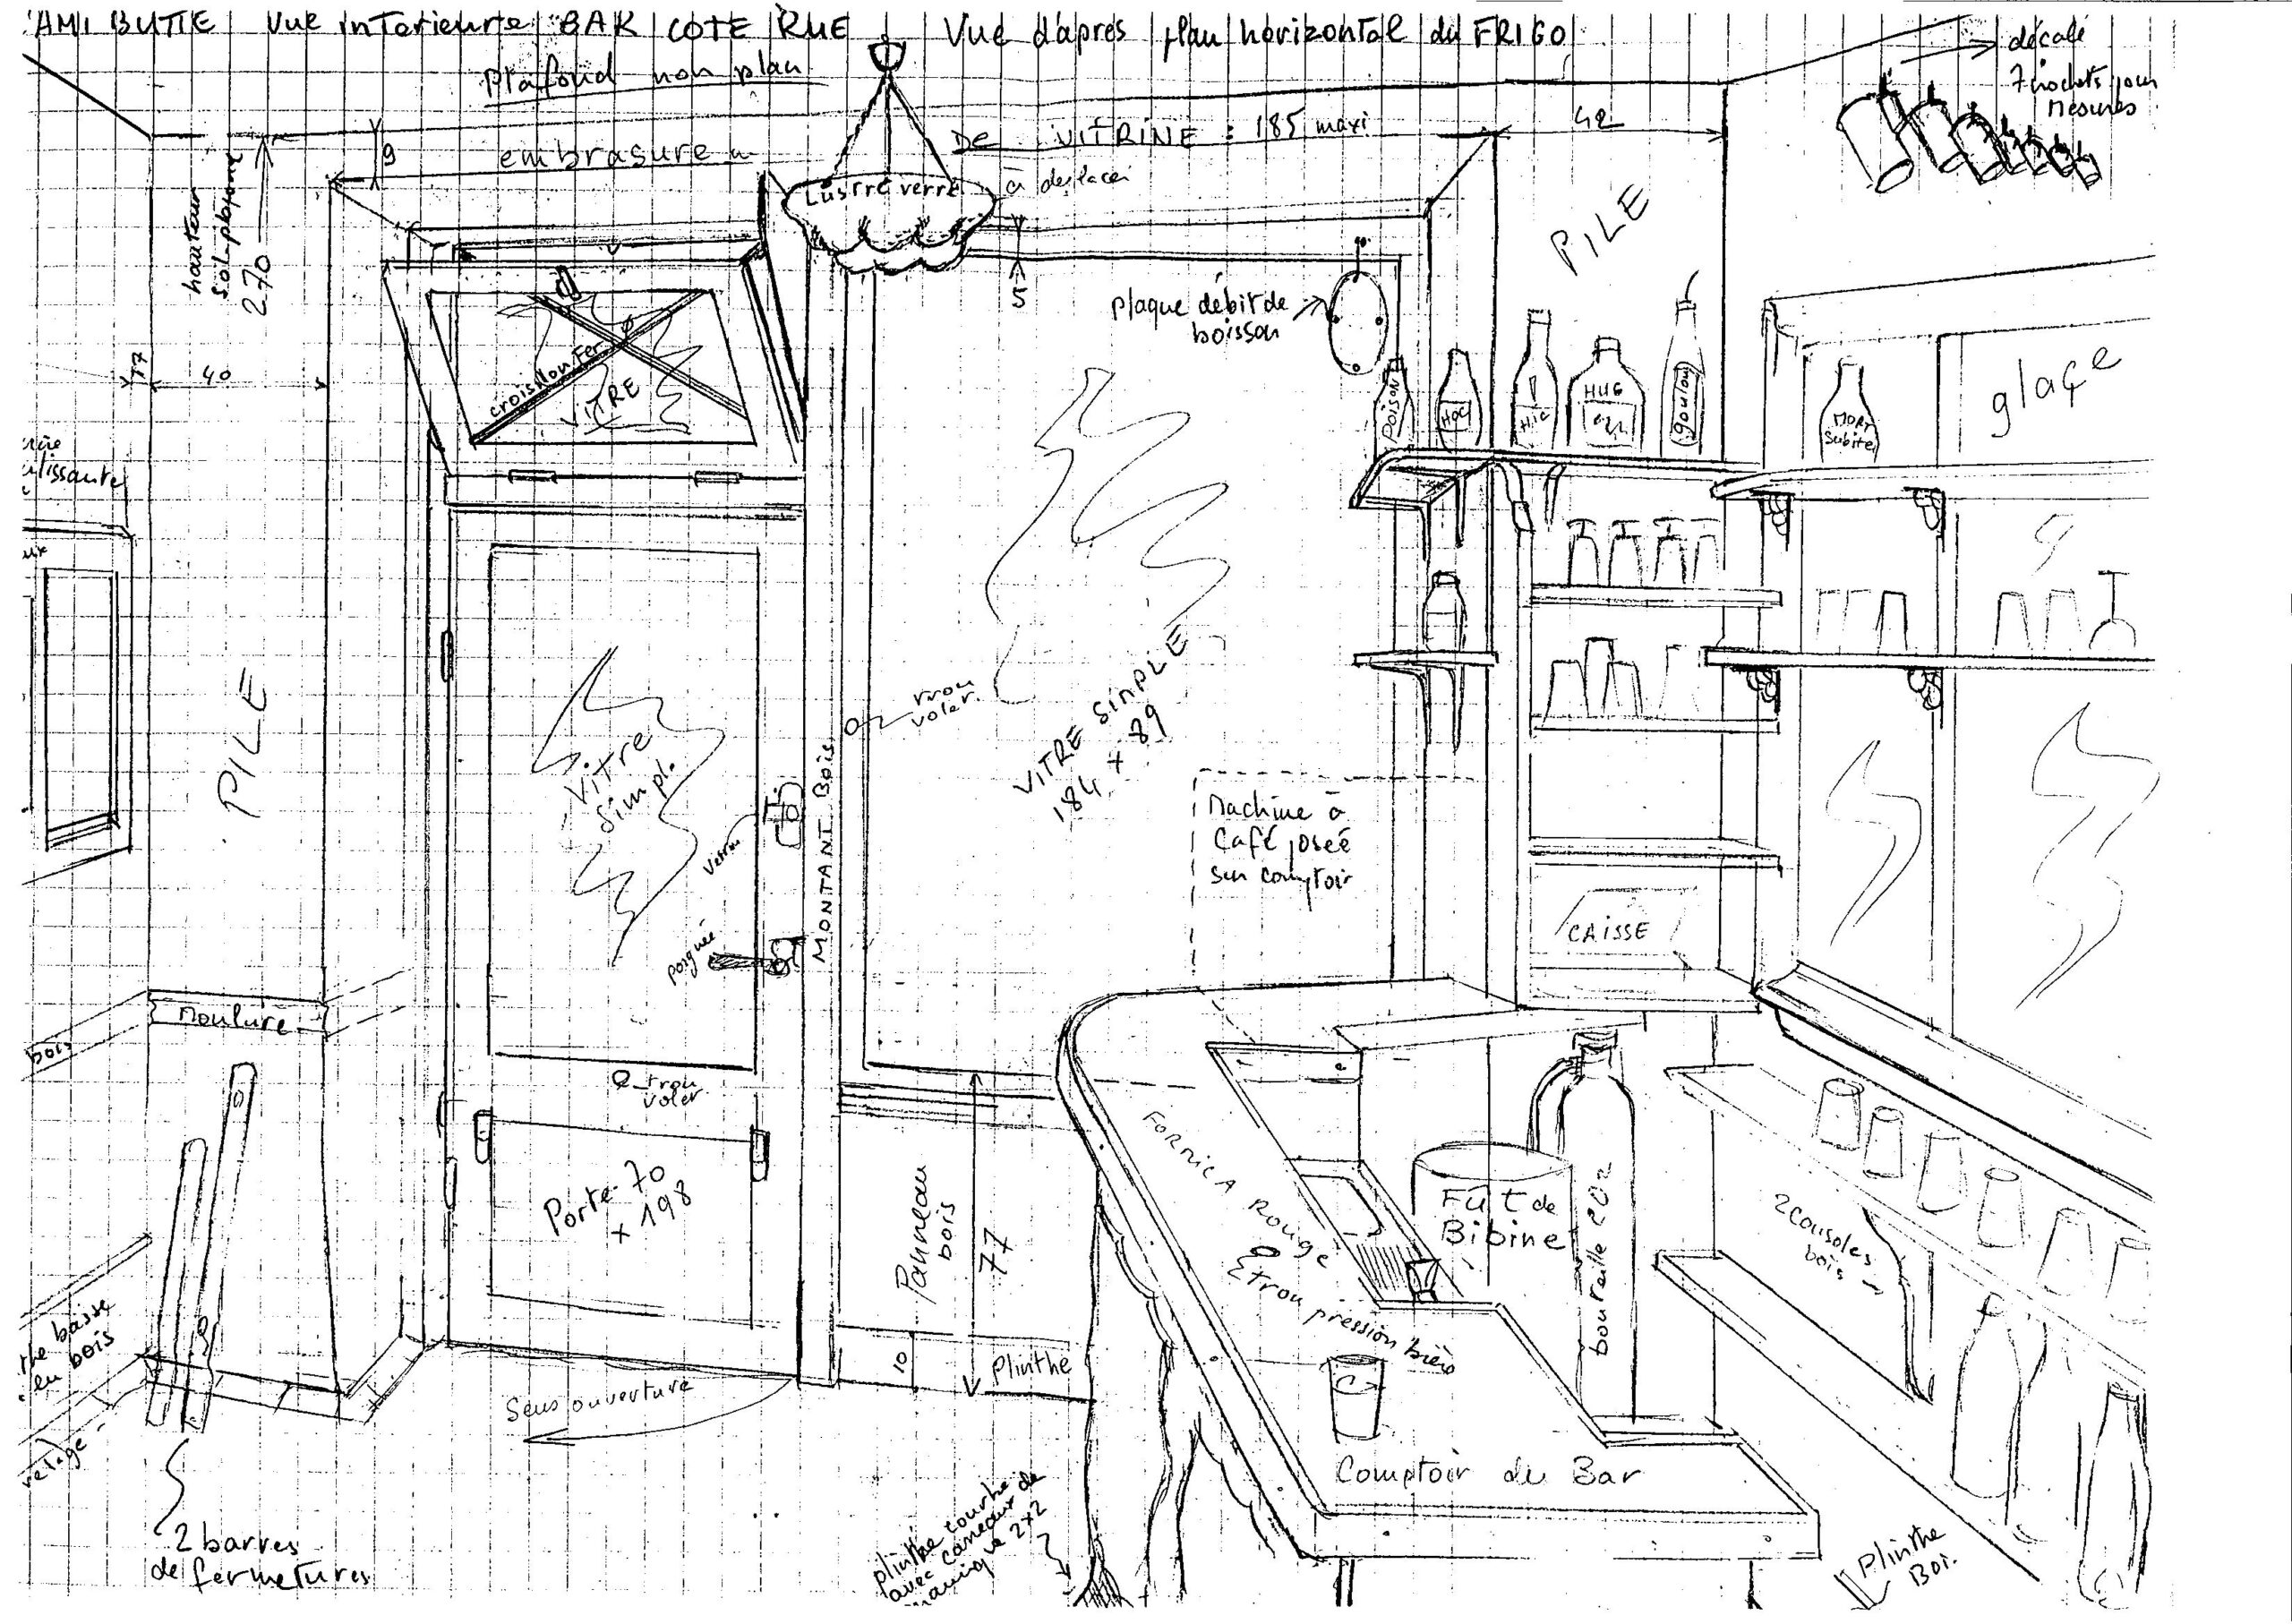 AMI BUTTE Vue intérieure BAR COTE RUE Vue d'après plan horizontal du FRIGO
Plafond non plan
décalé
7 crochets pour
mesures
embrasure DE VITRINE : 185 maxi
à deplacer
42
9
hauteur
sol plafond
270
Lustre verre
PILE
5
plaque débit de
boisson
17
40
croisillon Fer
VITRE
Poison
HOC
HIC
HUG
goulou
MORT
Subite
glaçe
PILE
Vitre
simpl.
verrou
poignée
MONTANT Bois
trou
voler.
VITRE SIMPLE
184 x 89
Machine à
Café posée
sur comptoir
CAISSE
Moulure
bois
trou
voler.
Porte 70
x 198
Panneau
bois
77
10
Plinthe
Sens ouverture
basse
en bois
2 barres
de fermetures
plinthe tourne
avec carreaux de
2x2
FORMICA ROUGE
trou pression bière
Fût de
Bibine
bouteille CO2
2 consoles
bois
Comptoir du Bar
Plinthe
Boi.